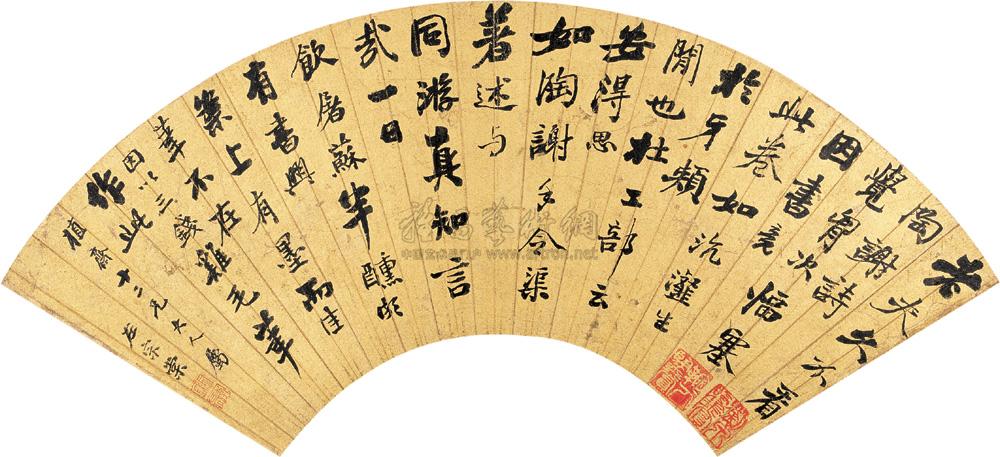 老夫久不看
陶謝詩
覺胷次愊塞
因書
此卷如沆瀣生
於牙頰
閒也杜工部云
安得思
如陶謝手令渠
著述与
同游真知言
哉一日
飲屠蘇半醺頗
有書興
案上有墨而佳
筆不在
因以三錢雞毛筆
作此
植齋十二兄大人屬
左宗棠